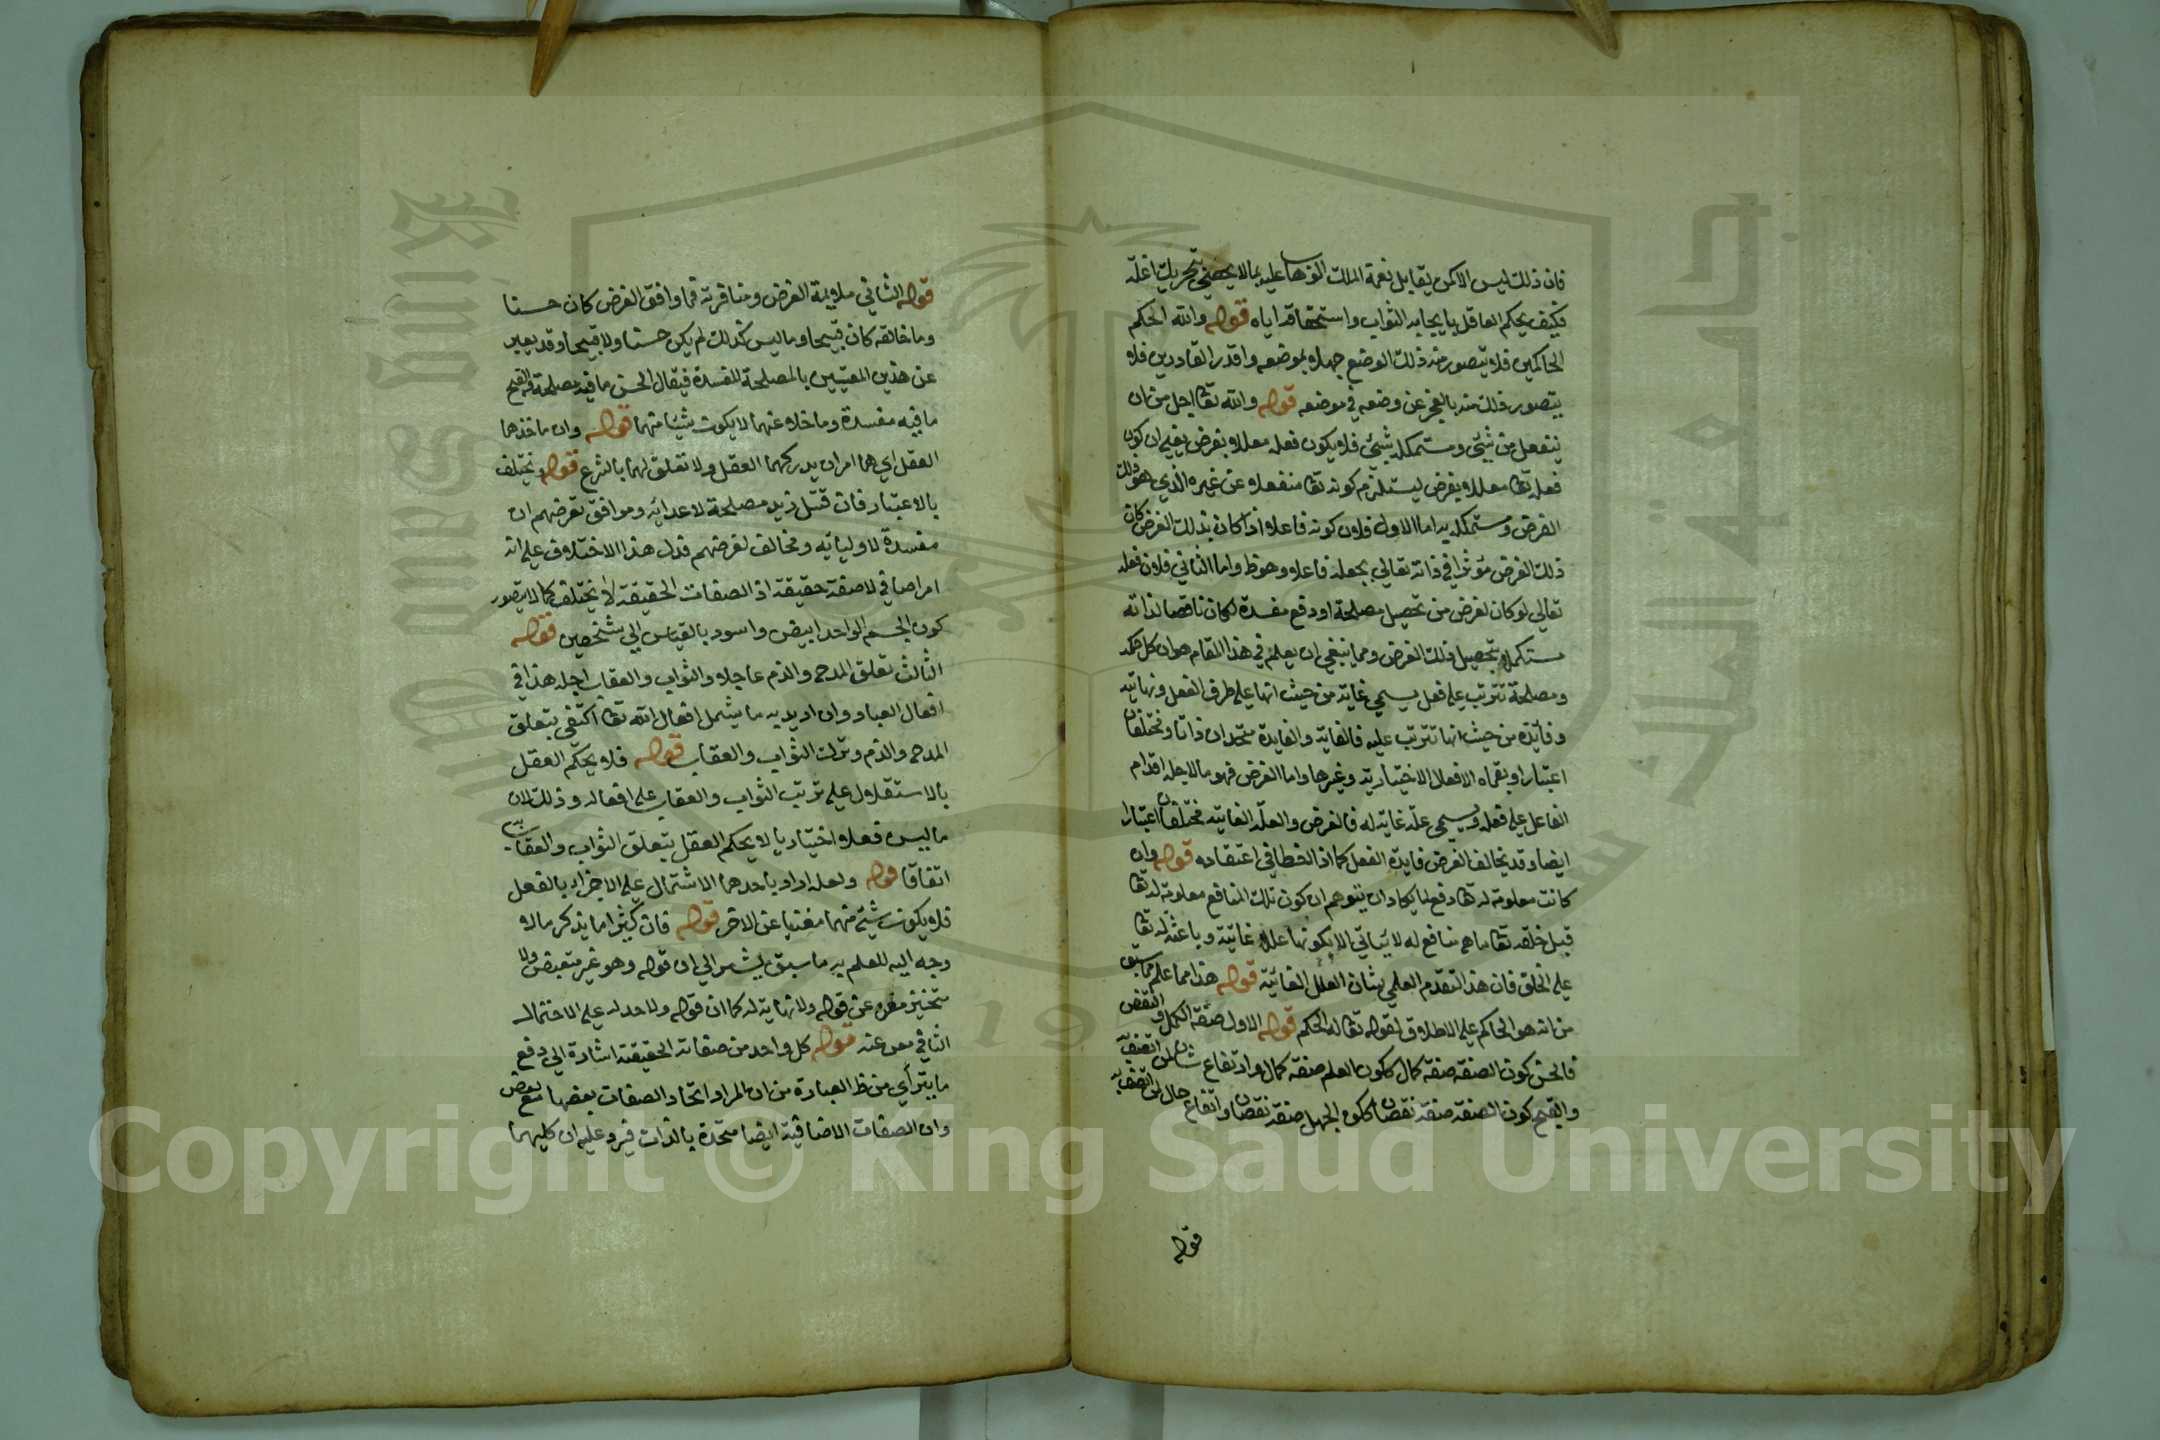 فان ذلك ليس الا كمن يقابل نعمة الملك الوهاب عليه بما لا يحصى بتحريك انملة
فكيف يحكم العاقل بايجابه الثواب واستحقاقه اياه قوله والله احكم
الحاكمين فلا يتصور منه ذلك الوضع جهلا بموضعه واقدر القادرين فلا
يتصور ذلك منه بالعجز عن وضعه في موضعه قوله والله تعا اجل من ان
ينفعل من شيئ ويستكمله بشيئ فلا يكون فعله معللا بغرض يعني ان كون
فعله تعا معللا بغرض يستلزم كونه تعا منفعلا عن غيره الذي هو ذلك
الغرض ومستكملا به اما الاول فلان كونه فاعلا اذا كان بذلك الغرض كان
ذلك الغرض مؤثرا في ذاته تعالي بجعله فاعلا وهو ظ واما الثاني فلان فعله
تعالي لو كان لغرض من تحصيل مصلحة او دفع مفسدة لكان ناقصا لذاته
مستكملا بتحصيل ذلك الغرض ومما ينبغي ان يعلم في هذا المقام هو ان كل حكمة
ومصلحة تترتب على فعل يسمي غاية من حيث انها على طرف الفعل ونهايته
وفائدة من حيث انها تترتب عليه فالغاية والفايدة متحدان ذاتا ومختلفان
اعتبارا ويعمان الافعال الاختيارية وغيرها واما الغرض فهو ما لاجله اقدام
الفاعل على فعله ويسمي علة غائية له فالغرض والعلة الغائية مختلفان اعتبارا
ايضا وقد يخالف الغرض فايدة الفعل كما اذا اخطا في اعتقاده قوله وان
كانت معلومة له تعا دفع لما يكاد ان يتوهم ان كون تلك المنافع معلومة له تعا
قبل خلقه تعا ما هي منافع له لا يتاتي الا بكونها عللا غائية وباعثة له تعا
على الخلق فان هذا التقدم العلمي شان العلل الغائية قوله هذا مما علم مما سبق
من انه هو الحاكم على الاطلاق لقوله تعا له الحكم قوله الاول صفة الكمال والنقص
فالحسن كون الصفة صفة كمال ككون العلم صفة كمال وارتفاع شان لمن اتصف به
والقبح كون الصفة صفة نقصان ككون الجهل صفة نقصان واتضاع حال لمن اتصف به
قوله
قوله الثاني ملايمة الغرض ومنافرته فما وافق الغرض كان حسنا
وما خالفه كان قبيحا وما ليس كذلك لم يكن حسنا ولا قبيحا وقد يعبر
عن هذين المعنيين بالمصلحة المفسدة فيقال الحسن ما فيه مصلحة والقبيح
ما فيه مفسدة وما خلا عنهما لا يكون شيئا منهما قوله وان ماخذهما
العقل اي هما امران يدركهما العقل ولا تعلق لهما بالشرع قوله ويختلف
بالاعتبار فان قتل زيد مصلحة لاعدائه وموافق لغرضهم ان
مفسدة لاوليائه ومخالف لغرضهم فدل هذا الاختلاف على انه
امر اضافي لا صفة حقيقة اذ الصفات الحقيقة لا يختلف كما لا يتصور
كون الجسم الواحد ابيض واسود بالقياس الي شخصين قوله
الثالث تعلق المدح والذم عاجلا والثواب والعقاب اجلا هذا في
افعال العباد وان اريد به ما يشمل افعال الله تعا اكتفي بتعلق
المدح والذم وترك الثواب والعقاب قوله فلا يحكم العقل
بالاستقلال على ترتيب الثواب والعقاب على افعاله وذلك لان
ما ليس فعلا اختياريا لا يحكم العقل بتعلق الثواب والعقاب به
اتفاقا قوله ولعله اراد باحدهما الاشتمال على الاجزاء بالفعل
فلا يكون شيئ منهما مغنيا عن الاخر قوله فان كثيرا ما يذكر ما لا
وجه اليه للعلم به ما سبق يشير الي ان قوله وهو غير متبعض ولا
متجيز مغن عن قوله ولا نهاية له كما ان قوله ولا حد له على الاحتمال
الثاني مغن عنه قوله كل واحد من صفاته الحقيقة اشارة الي دفع
ما يترأي من ظ العبارة من ان المراد اتحاد الصفات بعضها مع بعض
وان الصفات الاضافية ايضا متحدة بالذات فيرد عليه ان كليهما
Copyright © King Saud University
King Saud University
19